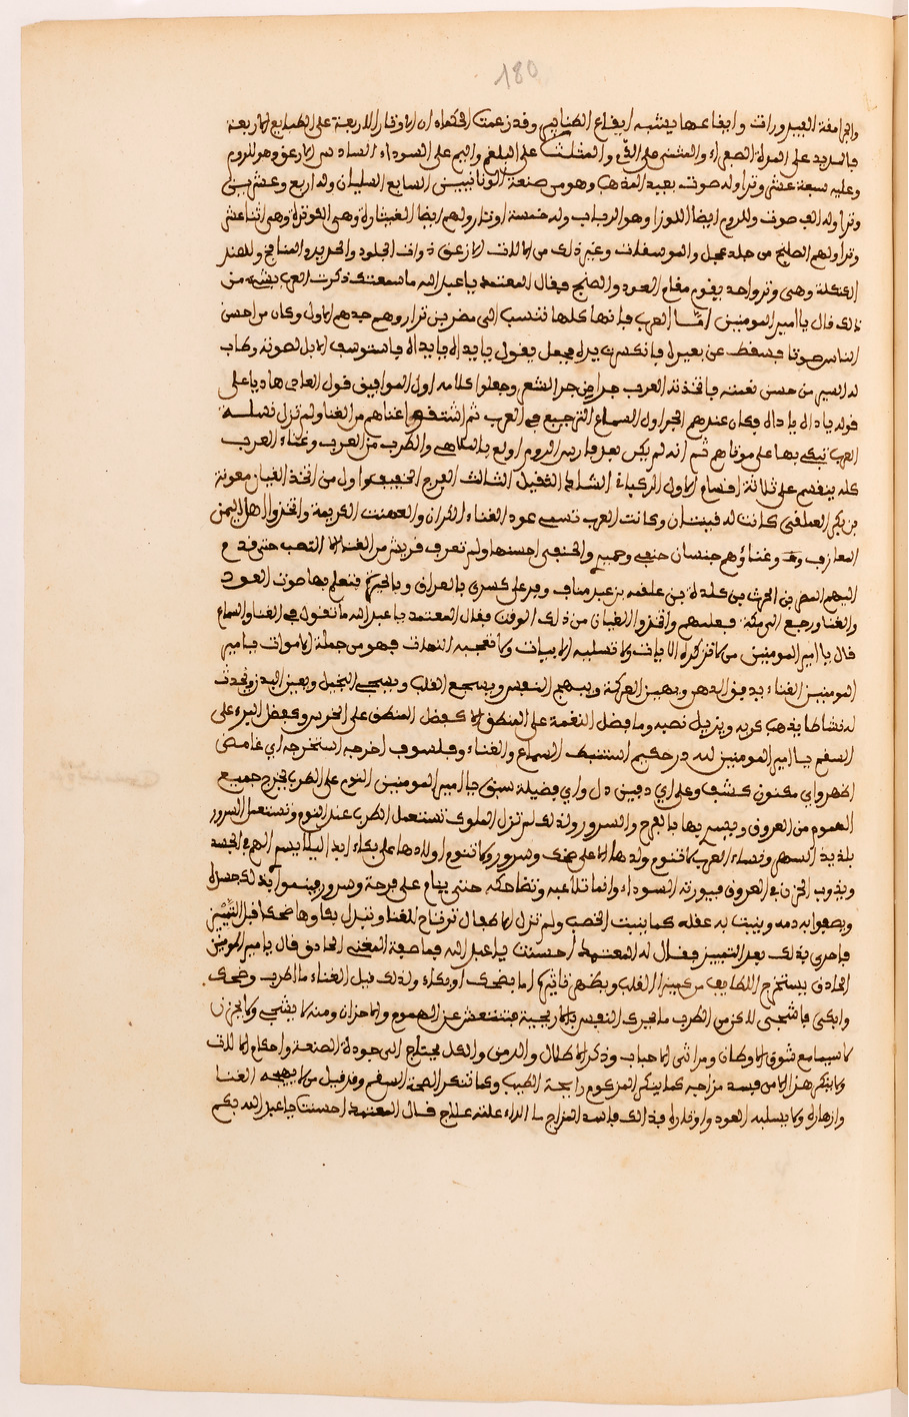 180
والجرامقة الغيدورات وايقاعها يشبه ايقاع الطنابير وقد زعمت الحكماء ان الاوتار الاربعة على الطبايع الاربعة
فالزيد على المرة الصفراء والمثنى على الدم والمثلث على البلغم والبم على السوداء السادس الارغن وهو للروم
وعليه سبعة عشر وترا وله صوت بعيد المذهب وهو من صنعة اليونانيين السابع السلبان وله اربع وعشرين
وترا وله الف صوت وللروم ايضا اللوزا وهو الرباب وله خمسة اوتار ولهم ايضا الغيثارة وهي اثناعشر
وترا ولهم الصلنج من جلد عجل والموسقات وغير ذلك من الالات الارغن ذوات الجلود والحديد والمنافخ وللهند
الكنكلة وهي وتر واحد يقوم مقام العود والصنج فقال المعتمد يا عبد الله ما سمعتك ذكرت العرب بشيء من
ذلك قال يا امير المومنين اما العرب فانها كلها تنتسب الى مضر بن نزار وهم جدهم الاول وكان من احسن
الناس صوتا فسقط عن بعيره فانكسرت يده فجعل يقول يا يداه يا يداه فاستوسقت الابل لصوته وطاب
لها السير من حسن نغمته فاتخذته العرب حداء من جر الشعر وجعلوا كلامه اول المواقيت فقول الحادي هاديا على
قوله يا داه يا داه فكان عندهم الحدا اول السماع الترجيع في العرب ثم اشتقوا غناهم من الغنا ولم تزل نساء
العرب تبكي بها على موتاهم ثم انه لم يكن بعد فارس والروم اولع بالملاهي والطرب من العرب وغناء العرب
كله ينقسم على ثلاثة اقسام الاول الركباني الثاني الثقيل الثالث الهزج الخفيف واول من اتخذ القيان معوية
بن بكر العملقي كانت له قينتان وكانت العرب تسمي عود الغناء الكران والعهنت الكريمة واتخذوا اهل اليمن
المعازف وغناؤهم جنسان حنفي وحميري والحنفي احسنها ولم تعرف قريش من الغنا الا النصب حتى قدم
اليهم النضر بن الحرث بن كلدة بن علقمة بن عبد مناف وفد على كسرى بالعراق وبالحيرة فتعلم بها صوت العود
والغنا ورجع الى مكة فعلمهم واتخذوا القيان من ذلك الوقت فقال المعتمد يا عبد الله ما تقول في الغنا والسماع
قال يا امير المومنين من لا تزكره الايات ولا تسليه الابيات ولا تعجبه التهات فهو من جملة الاموات يا امير
المومنين الغناء يدفق الذهن ويهين العركة ويبهج النفس ويشجع القلب ويسخي البخيل ويعين البدن وتحدث
له نشاطا يذهب كربه ويزيل نصبه وما فضل النغمة على المنطق الا كفضل المنطق على الخرس وكفضل البرء على
السقم يا امير المومنين لله در حكيم استنبط السماع والغناء وفيلسوف اخرجه استخرجه اي غامض
اظهر واي مكنون كشف وعلى اي دفين دل واي فضيلة سبق يا امير المومنين النوم على الطرب يخرج جميع
الهموم من العروق ويجسم بها بالفرح والسرور ولذلك لم تزل الملوك تستعمل الطرب عند النوم وتستعمل السرور
بلذيذ السهم ونساء العرب لا تنوم ولدها الا على ضحك وسرور ولا تنوم اولادها على بكاء ابدا ليلا يسم الهم في الجسد
ويذوب الحزن في العروق فيورثه السوداء وانما تلاعبه وتضاحكه حتى ينام على فرحة وسرور فينموا بذلك جسده
ويصفوا به دمه وينبت به عقله كما ينبت الخصب ولم تزل الاطفال ترتاح للغنا وتبدل بكاوها ضحكا قبل التمييز
فاحرى بذلك بعد التمييز فقال له المعتمد احسنت يا عبد الله فما صفة المغني الحاذق قال يا امير المومنين
الحاذق يستخرج اللطايف من القلب ويظهر تاثيرها اما بضحك او بكاء ولذلك قيل الغناء ما اطرب وضحك
وابكى فاشجى لاكن من الطرب ما يحرك النفس بالاريحية فتنتعش عن الهموم والاحزان ومنه ما يشجي ولا يحزن
لاسيما مع شوق الاوطان ومراثي الاحباب وذكر الاطلال والدمن والكل يحتاج الى جودة الصنعة واحكام الالات
ولا ينكر هذا الا من فسد مزاجه كما ينكر المزكوم رايحة الطيب وكما تنكر الصحة السقم وقد قيل من لا يهيجه الغنا
وازهاره ولا يسلبه العود واوتاره فذلك فاسد المزاج ما الداء علته علاج فقال المعتمد احسنت يا عبد الله بكم